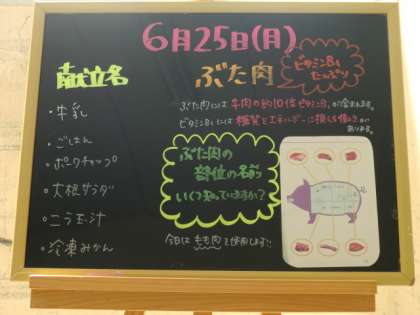 6月25日(月)
献立名
・牛乳
・ごはん
・ポークチャップ
・大根サラダ
・ニラ玉汁
・冷凍みかん
ぶた肉
ビタミンB₁
たっぷり
ぶた肉には牛肉の約10倍ビタミンB₁が含まれます。
ビタミンB₁には糖質をエネルギーに換える働きが
あります。
ぶた肉の
部位の名前
いくつ知っていますか?
今日はもも肉を使用します!!